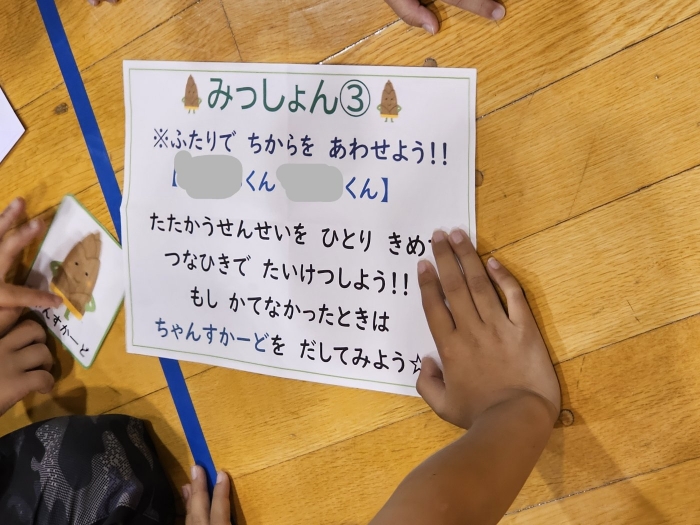 みっしょん③
※ふたりで ちからを あわせよう!!
【 くん くん】
たたかうせんせいを ひとり きめ
つなひきで たいけつしよう!!
もし かてなかったときは
ちゃんすかーどを だしてみよう☆
すかーど